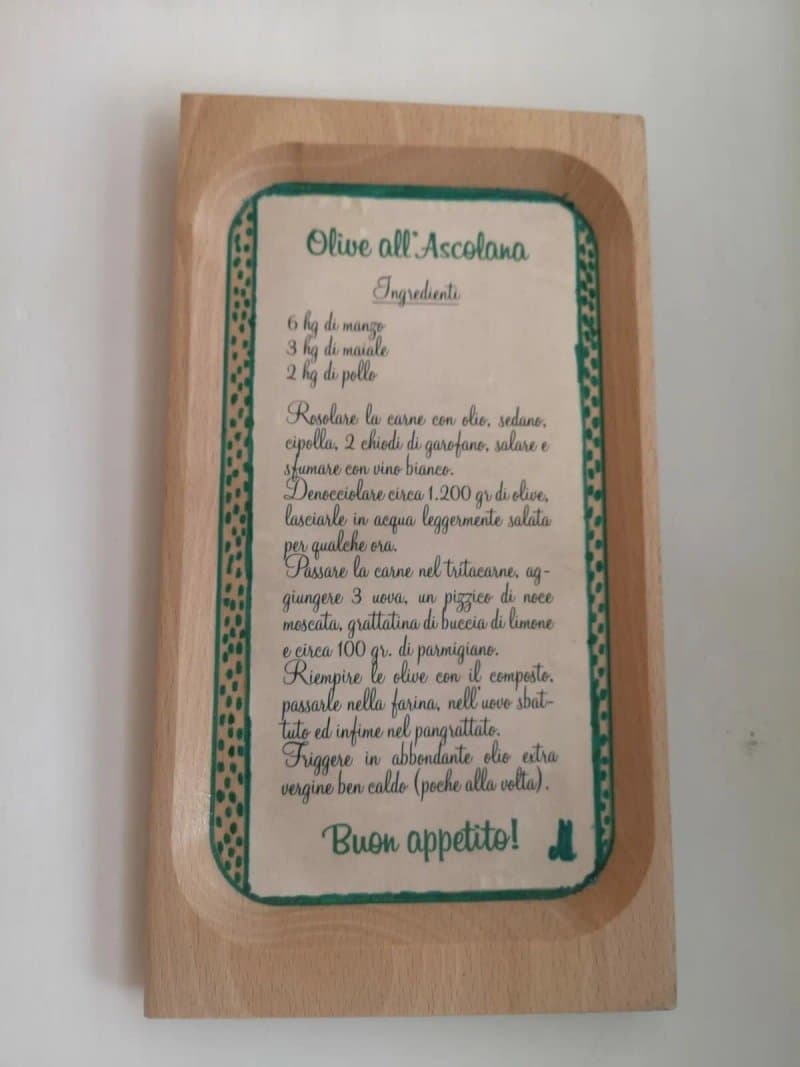 Olive all'Ascolana
Ingredienti
6 hg di manzo
3 hg di maiale
2 hg di pollo
Rosolare la carne con olio, sedano,
cipolla, 2 chiodi di garofano, salare e
sfumare con vino bianco.
Denocciolare circa 1.200 gr di olive,
lasciarle in acqua leggermente salata
per qualche ora.
Passare la carne nel tritacarne, ag-
giungere 3 uova, un pizzico di noce
moscata, grattatina di buccia di limone
e circa 100 gr. di parmigiano.
Riempire le olive con il composto,
passarle nella farina, nell'uovo sbat-
tuto ed infime nel pangrattato.
Friggere in abbondante olio extra
vergine ben caldo (poche alla volta).
Buon appetito!